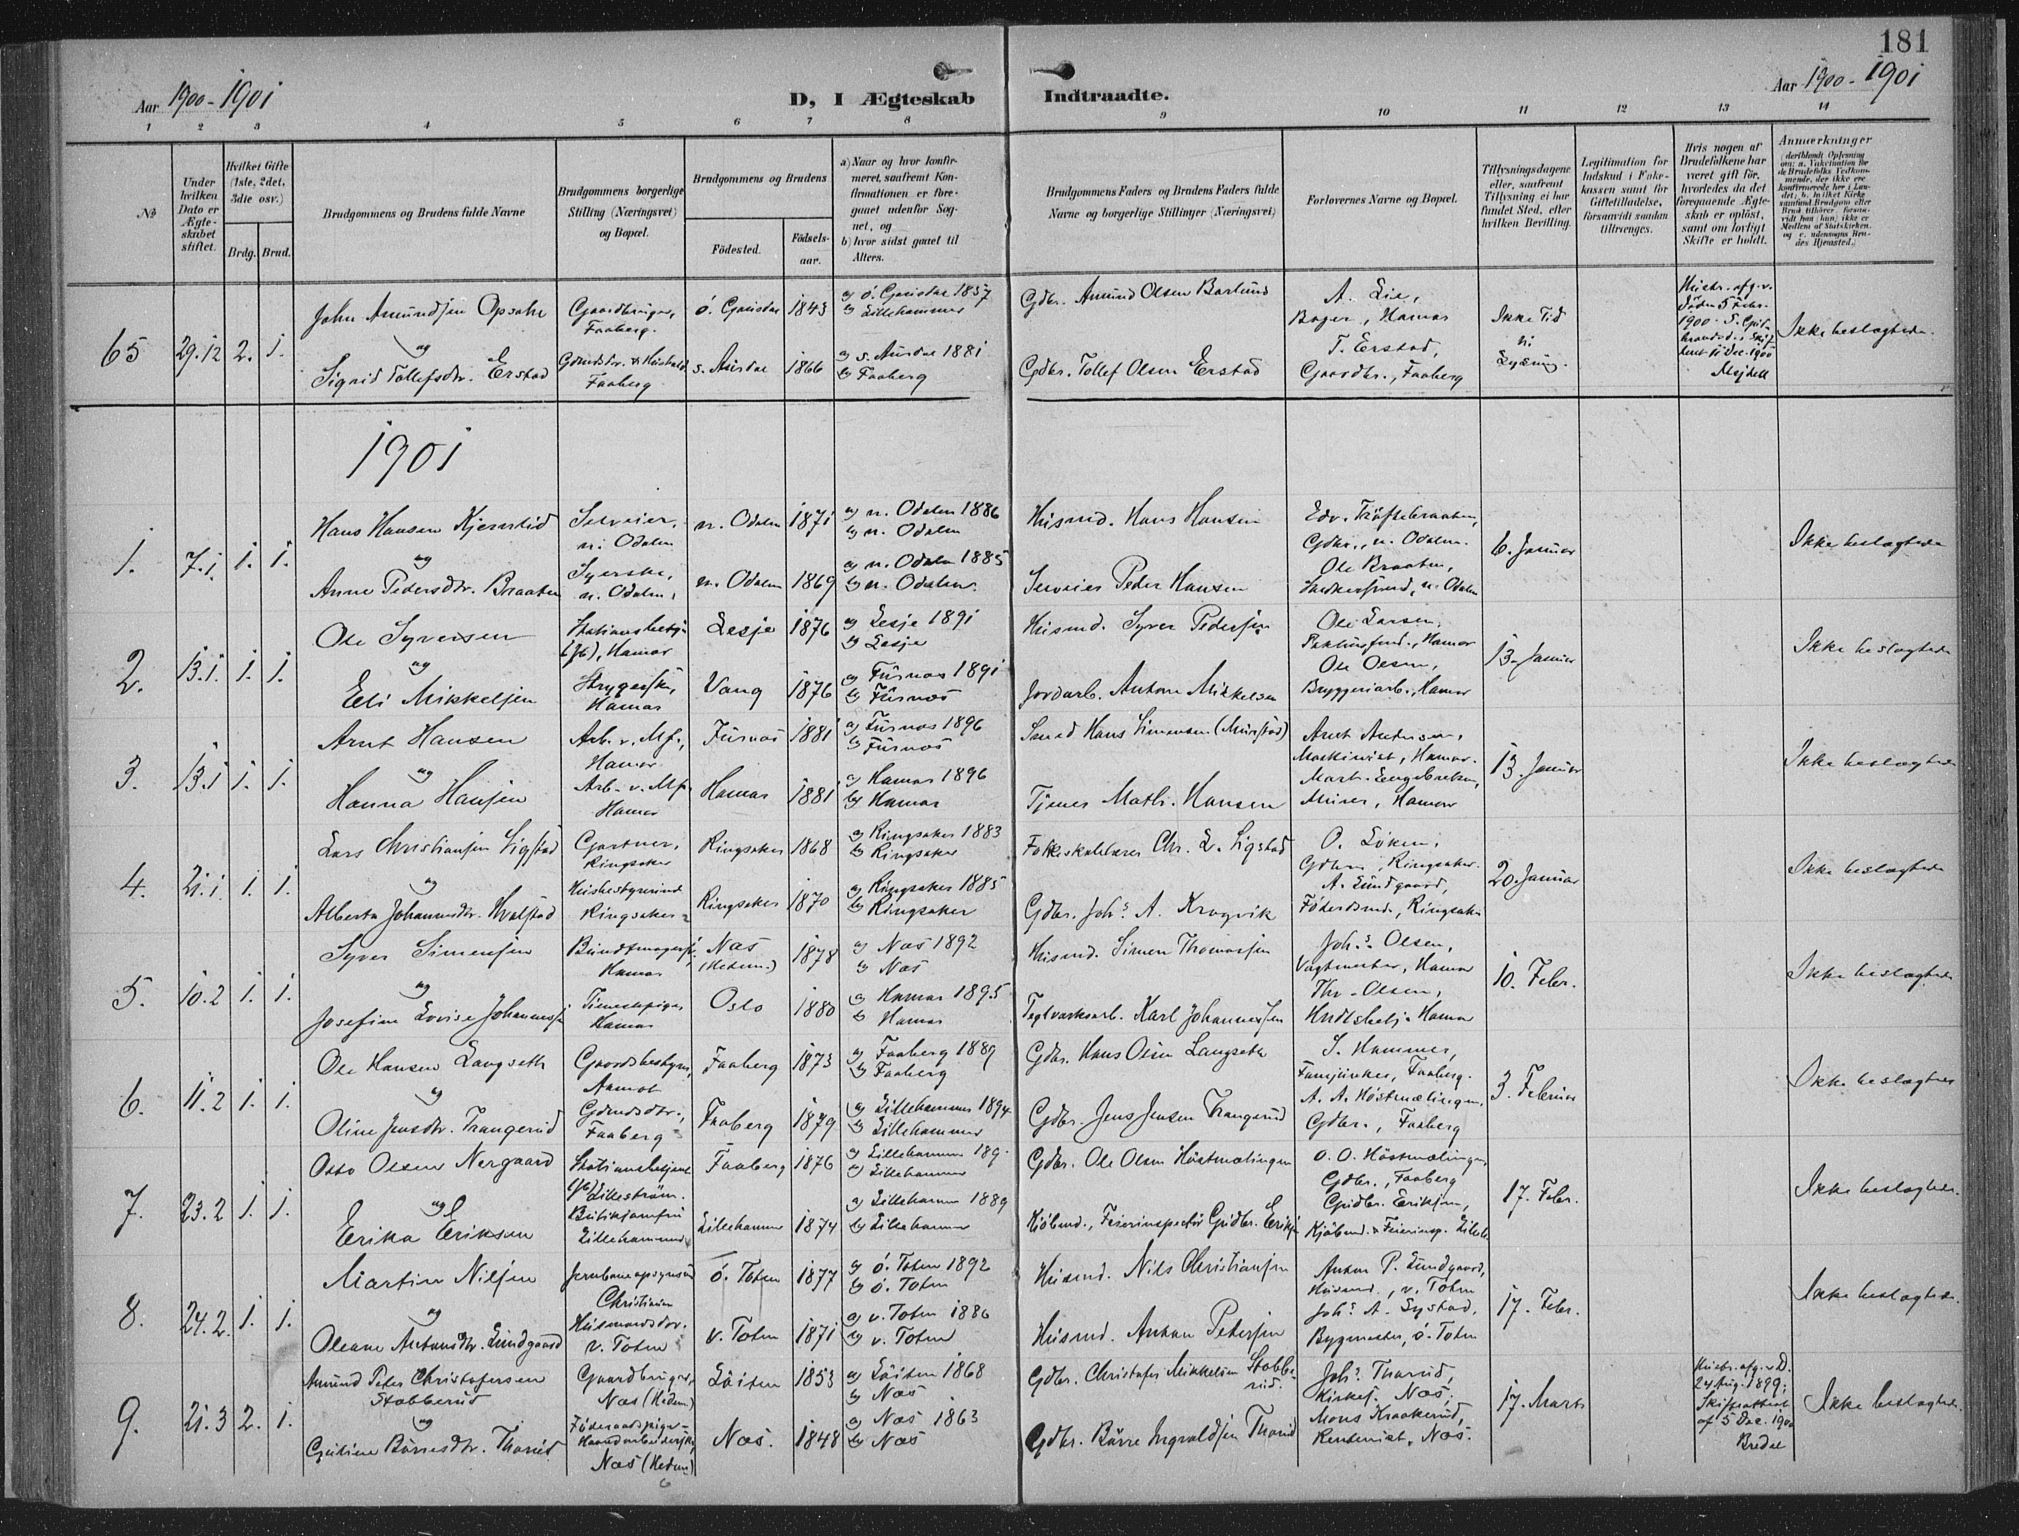 181
Aar 1900-1901
D, I Ægteskab Indtraadte.
Aar 1900-1901
1 2 3 4 5 6 7 8 9 10 11 12 13 14
No
Under hvilken Dato er Ægteskabet stiftet.
Hvilket Gifte (1ste, 2det, 3die osv.)
Brdg. Brud.
Brudgommens og Brudens fulde Navne
Brudgommens borgerlige Stilling (Næringsvei) og Bopæl.
Brudgommens og Brudens
Fødested.
Fødselsaar.
a) Naar og hvor konfirmeret, saafremt Konfirmationen er foregaaet udenfor Sognet, og
b) hvor sidst gaaet til Alters.
Brudgommens Faders og Brudens Faders fulde Navne og borgerlige Stillinger (Næringsvei)
Forlovernes Navne og Bopæl.
Tillysningsdagene eller, saafremt Tillysning ei har fundet Sted, efter hvilken Bevilling.
Legitimation for Indskud i Enkekassen samt for Giftetilladelse, forsaavidt saadan tiltrænges.
Hvis nogen af Brudefolkene har været gift før, hvorledes da det foregaaende Ægteskab er opløst, samt om lovligt Skifte er holdt.
Anmerkninger
65 29.12 2. 1.
John Amundsen Opsahl
Gaardbruger, Faaberg.
ö. Gausdal 1843
a) ö. Gausdal 1857
b) Lillehammer
Gdbr. Amund Olsen Barlund
A. Lie,
Bager, Hamar
Ikke Tid til Lysning.
Ikke beslægtede.
og
Sigrid Tollefsdtr. Erstad
Faaberg.
s. Aurdal 1866
a) s. Aurdal 1881
b) Faaberg
Gdbr. Tollef Olsen Erstad
T. Erstad,
Gaardbr., Faaberg
1901
1. 7.1. 1. 1.
Hans Hansen Kjernstid
n. Odalen
n. Odalen 1871
a) n. Odalen 1886
b) n. Odalen
Husmd. Hans Hansen
Gdbr., n. Odalen.
6. Januar
Ikke beslægtede
og
Anne Pedersdtr. Braaten
Syerske, n. Odalen,
n. Odalen 1869
a) n. Odalen 1885
b) n. Odalen.
Peder Hansen
Ole Braaten,
n. Odalen
2. 13.1. 1. 1.
Ole Syversen
Hamar
Lesje 1876
a) Lesje 1891
b) Lesje
Husmd. Syver Pedersen
Ole Larsen,
Hamar
13. Januar
Ikke beslægtede
og
Eli Mikkelsen
Hamar
Vang 1876
a) Furnæs 1891
b) Furnæs
Jordarb. Anton Mikkelsen
Ole Olsen,
Bryggeriarb., Hamar
3. 13.1 1. 1.
Arnt Hansen
Arb. v. Mf., Hamar
Furnæs 1881
a) Furnæs 1896
b) Furnæs
Smed Hans Simensen (Murstad)
Arnt Andersen,
Maskinist, Hamar.
13. Januar
Ikke beslægtede
og
Hanna Hansen
Arb. v. Mf. Hamar
Hamar 1881
a) Hamar 1896
b) Hamar
Tjener Math. Hansen
Mart. Engebretsen,
Murer, Hamar
4. 21.1 1. 1.
Lars Christiansen Sigstad
Gartner, Ringsaker
Ringsaker 1868
a) Ringsaker 1883
b) Ringsaker
Folkeskolelærer Chr. L. Sigstad
O. Løken,
Ringsaker.
20. Januar
Ikke beslægtede
og
Alberta Johannesdtr. Hvalstad
Husbestyrerinde Ringsaker
Ringsaker 1870
a) Ringsaker 1885
b) Ringsaker
Gdbr. Johs. A. Kragvik
A. Lundgaard,
Ringsaker
5. 10.2 1. 1.
Syver Simensen
Hamar
Næs (Hedem.) 1878
a) Næs 1892
b) Næs
Husmd. Simen Thomassen
Johs. Olsen,
Vagtmester, Hamar
10. Febr.
Ikke beslægtede
og
Josefine Lovise Johannessen
Tjenestepige, Hamar
Oslo 1880
a) Hamar 1895
b) Hamar
Teglværksarb. Karl Johannessen
Thr. Olsen,
Hamar
6. 11.2 1. 1.
Ole Hansen Langseth
Gaardsbestyrer, Aamot
Faaberg 1873
a) Faaberg 1889
b) Faaberg
Gdbr. Hans Olsen Langseth
S. Hammer,
Faaberg.
3. Februar
Ikke beslægtede
og
Oline Jensdtr. Trangerud
Gdmdsdtr., Faaberg
Faaberg 1879
a) Lillehammer 1894
b) Lillehammer
Gdbr. Jens Jensen Trangerud
A. A. Höstmælingen,
Gdbr., Faaberg
7. 23.2 1. 1.
Otto Olsen Nergaard
Lillestrøm.
Faaberg 1876
a) Lillehammer 189
b) Lillehammer
Gdbr. Ole Olsen Höstmælingen
O. O. Höstmælingen
Gdbr., Faaberg
17. Febr.
Ikke beslægtede.
og
Erika Eriksen
Butikjomfru Lillehammer
Lillehammer 1874
a) Lillehammer 1889
b) Lillehammer
Kjøbmd., Feierinspektör Gudbr. Eriksen
Gudbr. Eriksen,
Kjøbmd. & Feierinsp. Lilleh.
8. 24.2. 1. 1.
Martin Nilsen
Christiania
ö. Toten 1877
a) ö. Toten 1892
b) ö. Toten
Husmd. Nils Christiansen
Anton P. Lundgaard,
Husmd., v. Toten
17. Febr.
Ikke beslægtede.
og
Oleane Antonsdtr. Lundgaard
Husmandsdtr. v. Toten
v. Toten 1871
a) v. Toten 1886
b) v. Toten
Husmd. Anton Petersen
Johs. A. Systad,
Bygmester, ö. Toten
9. 21.3 2. 1.
Amund Peter Christofersen Stabberud
Gaardbruger, Næs (Hedem)
Löiten 1853
a) Löiten 1868
b) Næs
Gdbr. Christofer Mikkelsen Stabberud.
Johs. Thorud,
Kirkes. Næs,
17. Marts
24 Aug. 1899;
af 5 Dec. 1900
Ikke beslægtede.
og
Gustine Börresdtr. Thorud
Næs (Hedem)
Næs. 1848
a) Næs 1863
b) Næs
Gdbr. Börre Ingvaldsen Thorud
Mons Kraakerud,
Rentenist, Næs.